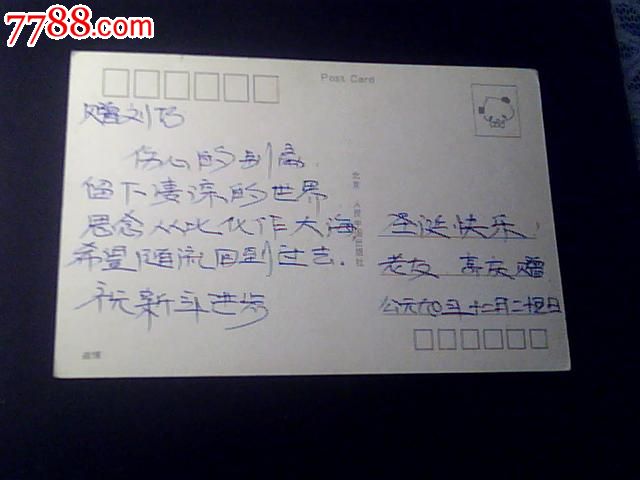 7788.com
Post Card
赠刘巧
伤心的别离
留下凄凉的世界
思念从比化作大海
希望随流回到过去.
祝新年进步
北京 人民中国出版社
圣诞快乐,
老友 高庆赠
公元九〇年十二月二十日